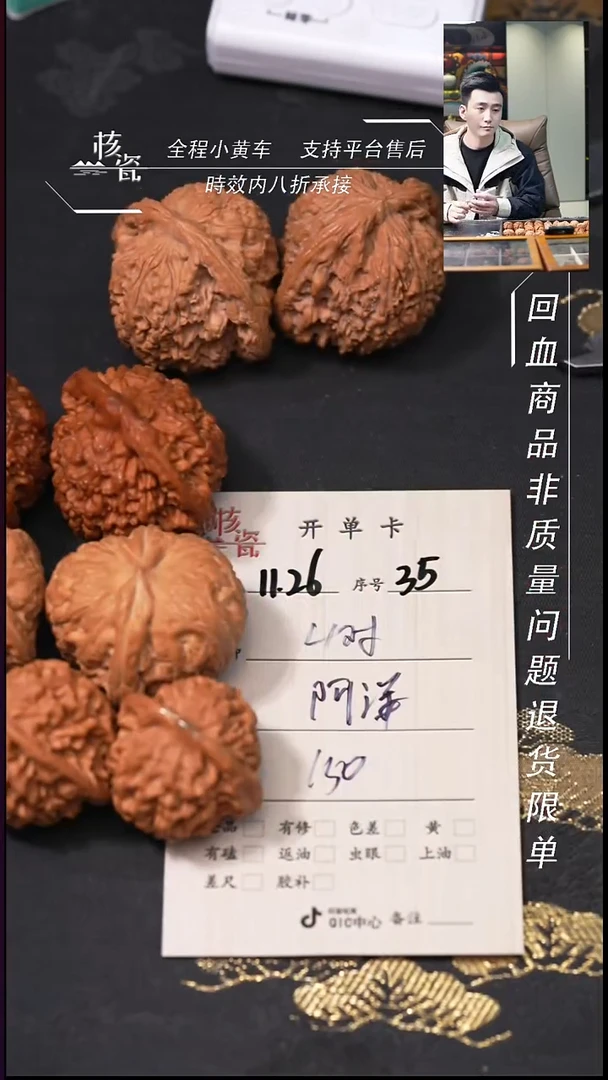 核瓷
全程小黄车 支持平台售后
時效内八折承接
回血商品非质量问题退货限单
核瓷 开单卡
11.26 序号 35
4对
阿洋
150
有修 色差 黄
有磕 返油 虫眼 上油
差尺 胶补
QIC中心 备注